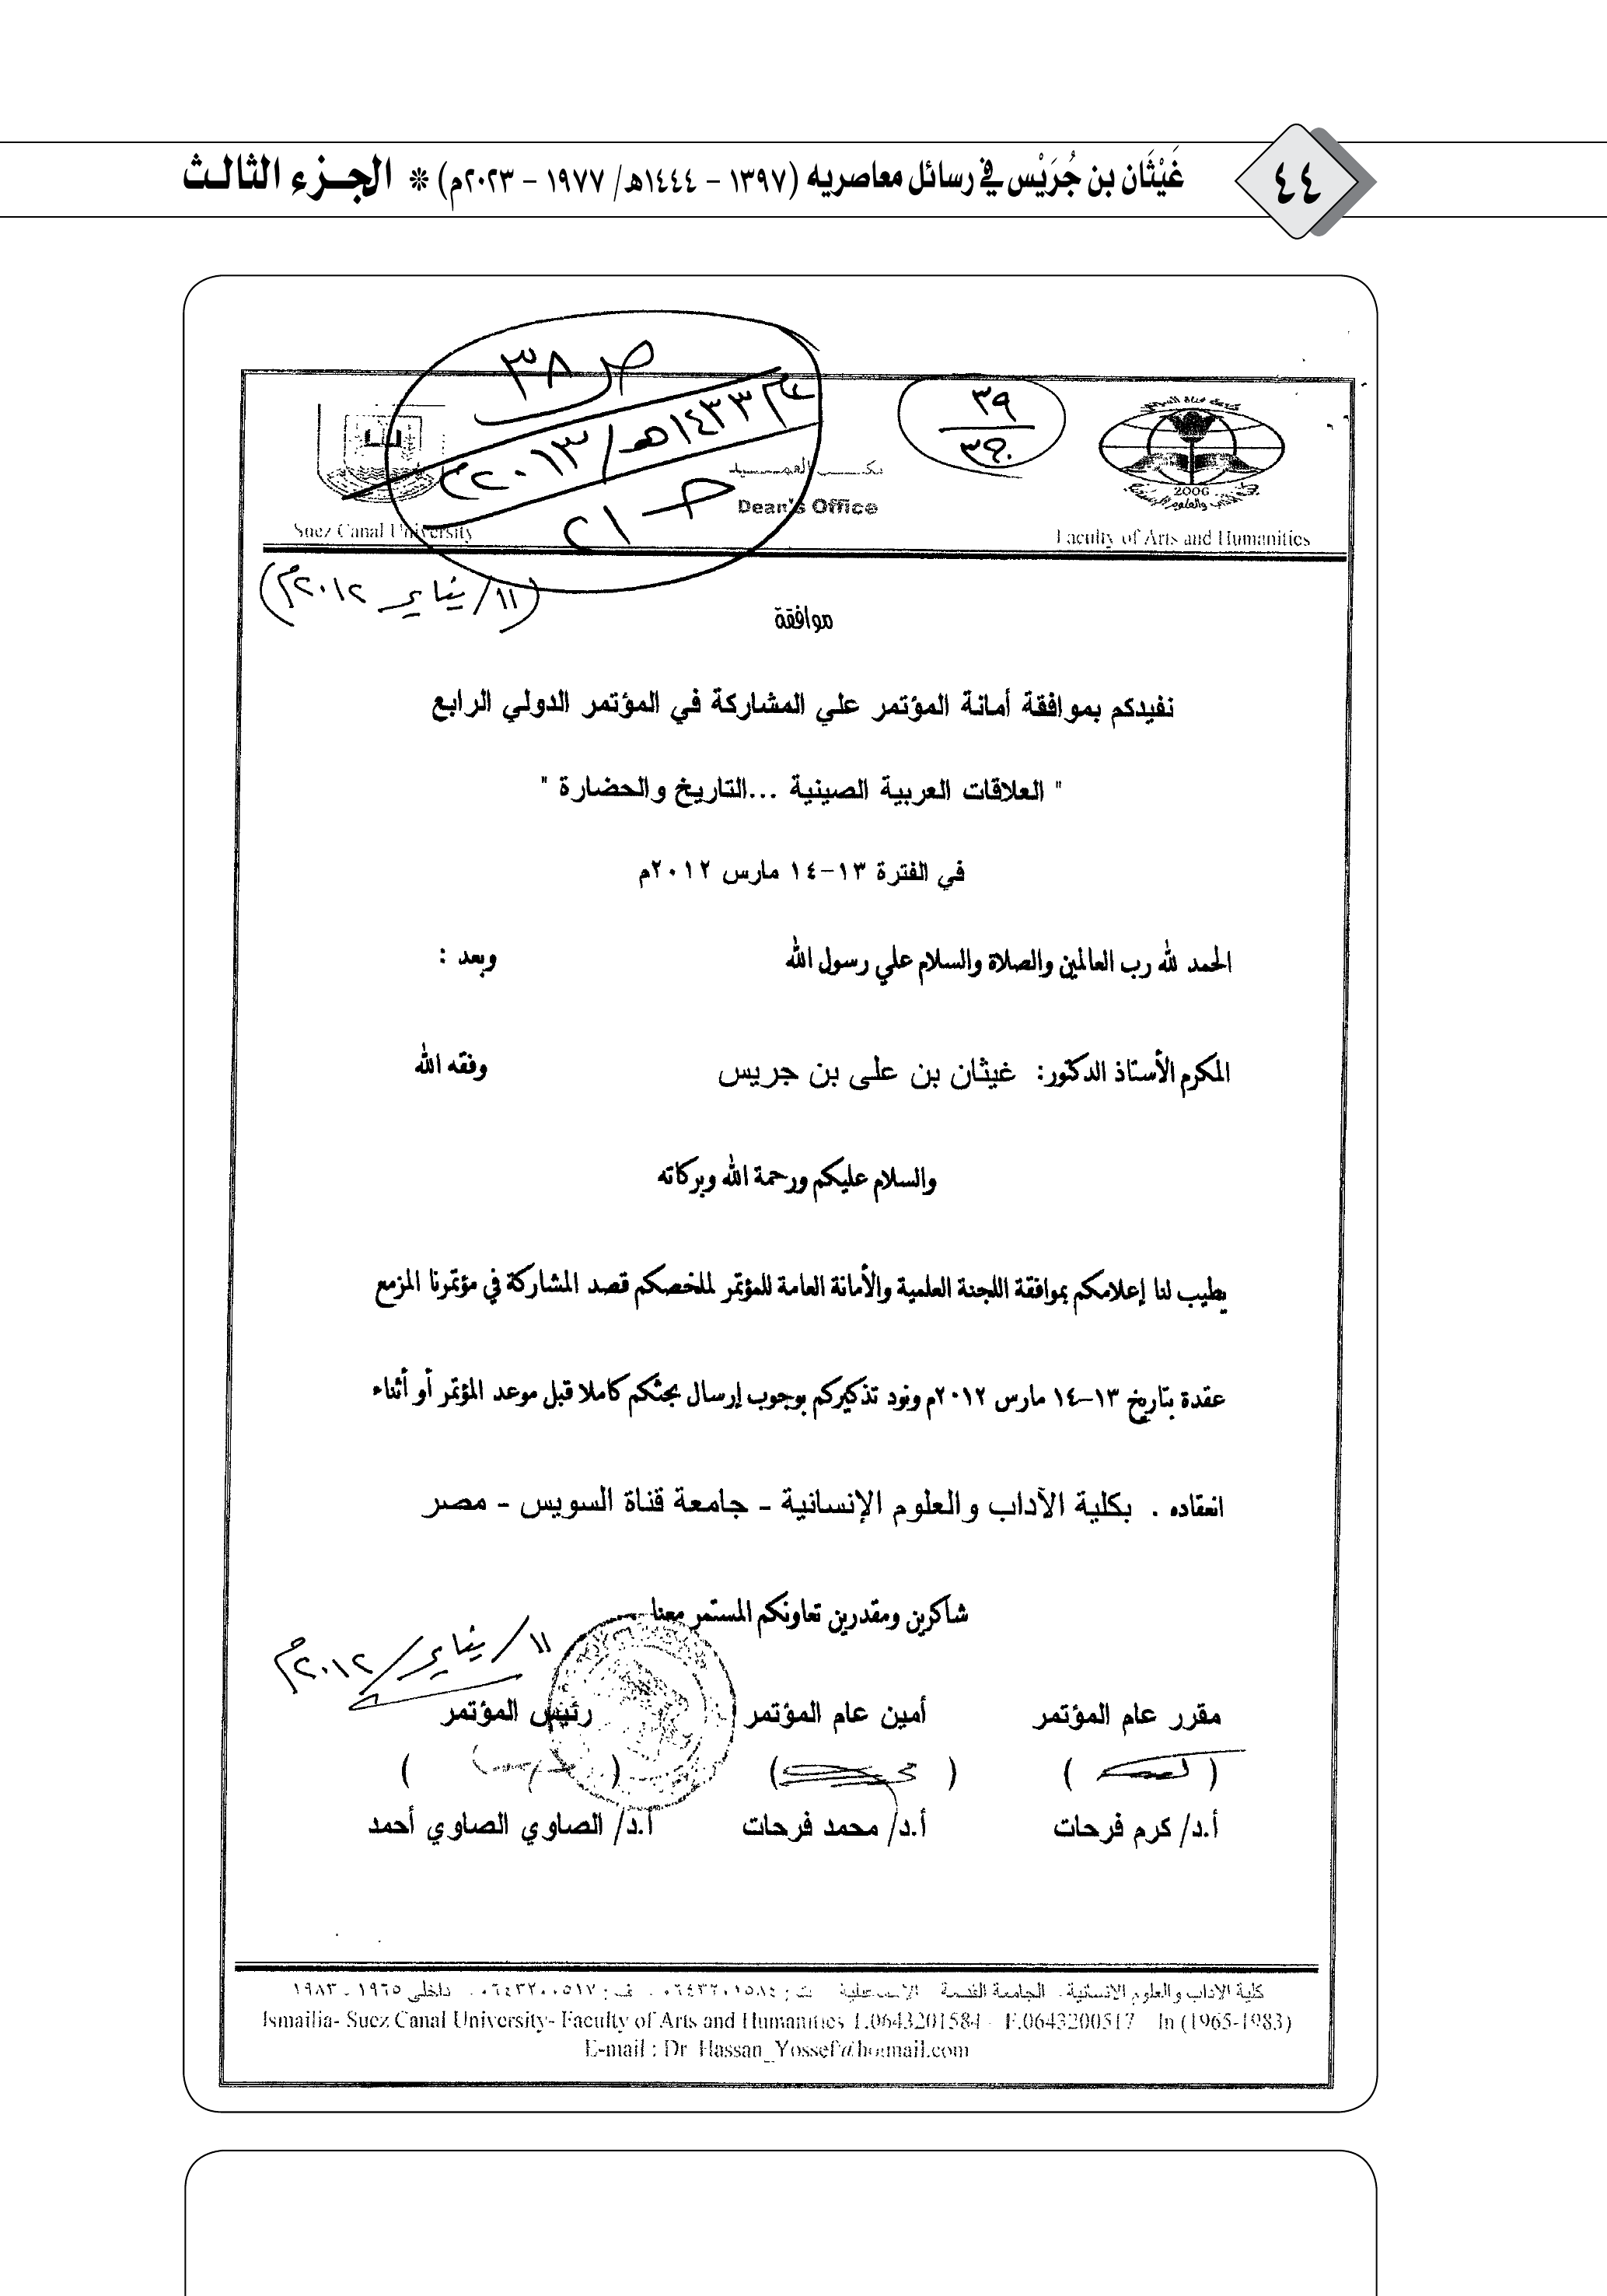 ٤٤
غَيْثَان بن جُرَيْس في رسائل معاصريه (١٣٩٧ - ١٤٤٤هـ/ ١٩٧٧ - ٢٠٢٣م) * الجـزء الثالـث
ص ٣٨
١٤٣٣هـ/٢٠١٣م
حـ ٢١
٣٩
Dean's Office
Suez Canal University
2006
Faculty of Arts and Humanities
(١١/ يناير ٢٠١٢م)
موافقة
نفيدكم بموافقة أمانة المؤتمر علي المشاركة في المؤتمر الدولي الرابع
" العلاقات العربية الصينية ...التاريخ والحضارة "
في الفترة ١٣-١٤ مارس ٢٠١٢م
الحمد لله رب العالمين والصلاة والسلام علي رسول الله وبعد :
المكرم الأستاذ الدكتور: غيثان بن على بن جريس وفقه الله
والسلام عليكم ورحمة الله وبركاته
يطيب لنا إعلامكم بموافقة اللجنة العلمية والأمانة العامة للمؤتمر لملخصكم قصد المشاركة في مؤتمرنا المزمع
عقدة بتاريخ ١٣-١٤ مارس ٢٠١٢م ونود تذكيركم بوجوب إرسال بحثكم كاملا قبل موعد المؤتمر أو أثناء
انعقاده . بكلية الآداب والعلوم الإنسانية - جامعة قناة السويس - مصر
شاكرين ومقدرين تعاونكم المستمر معنا
١١/ يناير/ ٢٠١٢م
مقرر عام المؤتمر أمين عام المؤتمر رئيس المؤتمر
أ.د/ كرم فرحات أ.د/ محمد فرحات أ.د/ الصاوي الصاوي أحمد
كلية الآداب والعلوم الانسانية - الجامعة القديمة - الإسماعيلية ت : ٠٦٤٣٢٠١٥٨٤ - ف : ٠٦٤٣٢٠٠٥١٧ - داخلى ١٩٦٥ - ١٩٨٣
Ismailia- Suez Canal University- Faculty of Arts and Humanities T.0643201584 - F.0643200517 In (1965-1983)
E-mail : Dr_Hassan_Yossef@hotmail.com